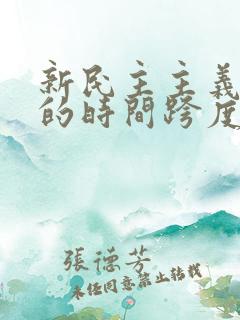 新民主主義
的時間跨度
張德芳
未經同意禁止轉載